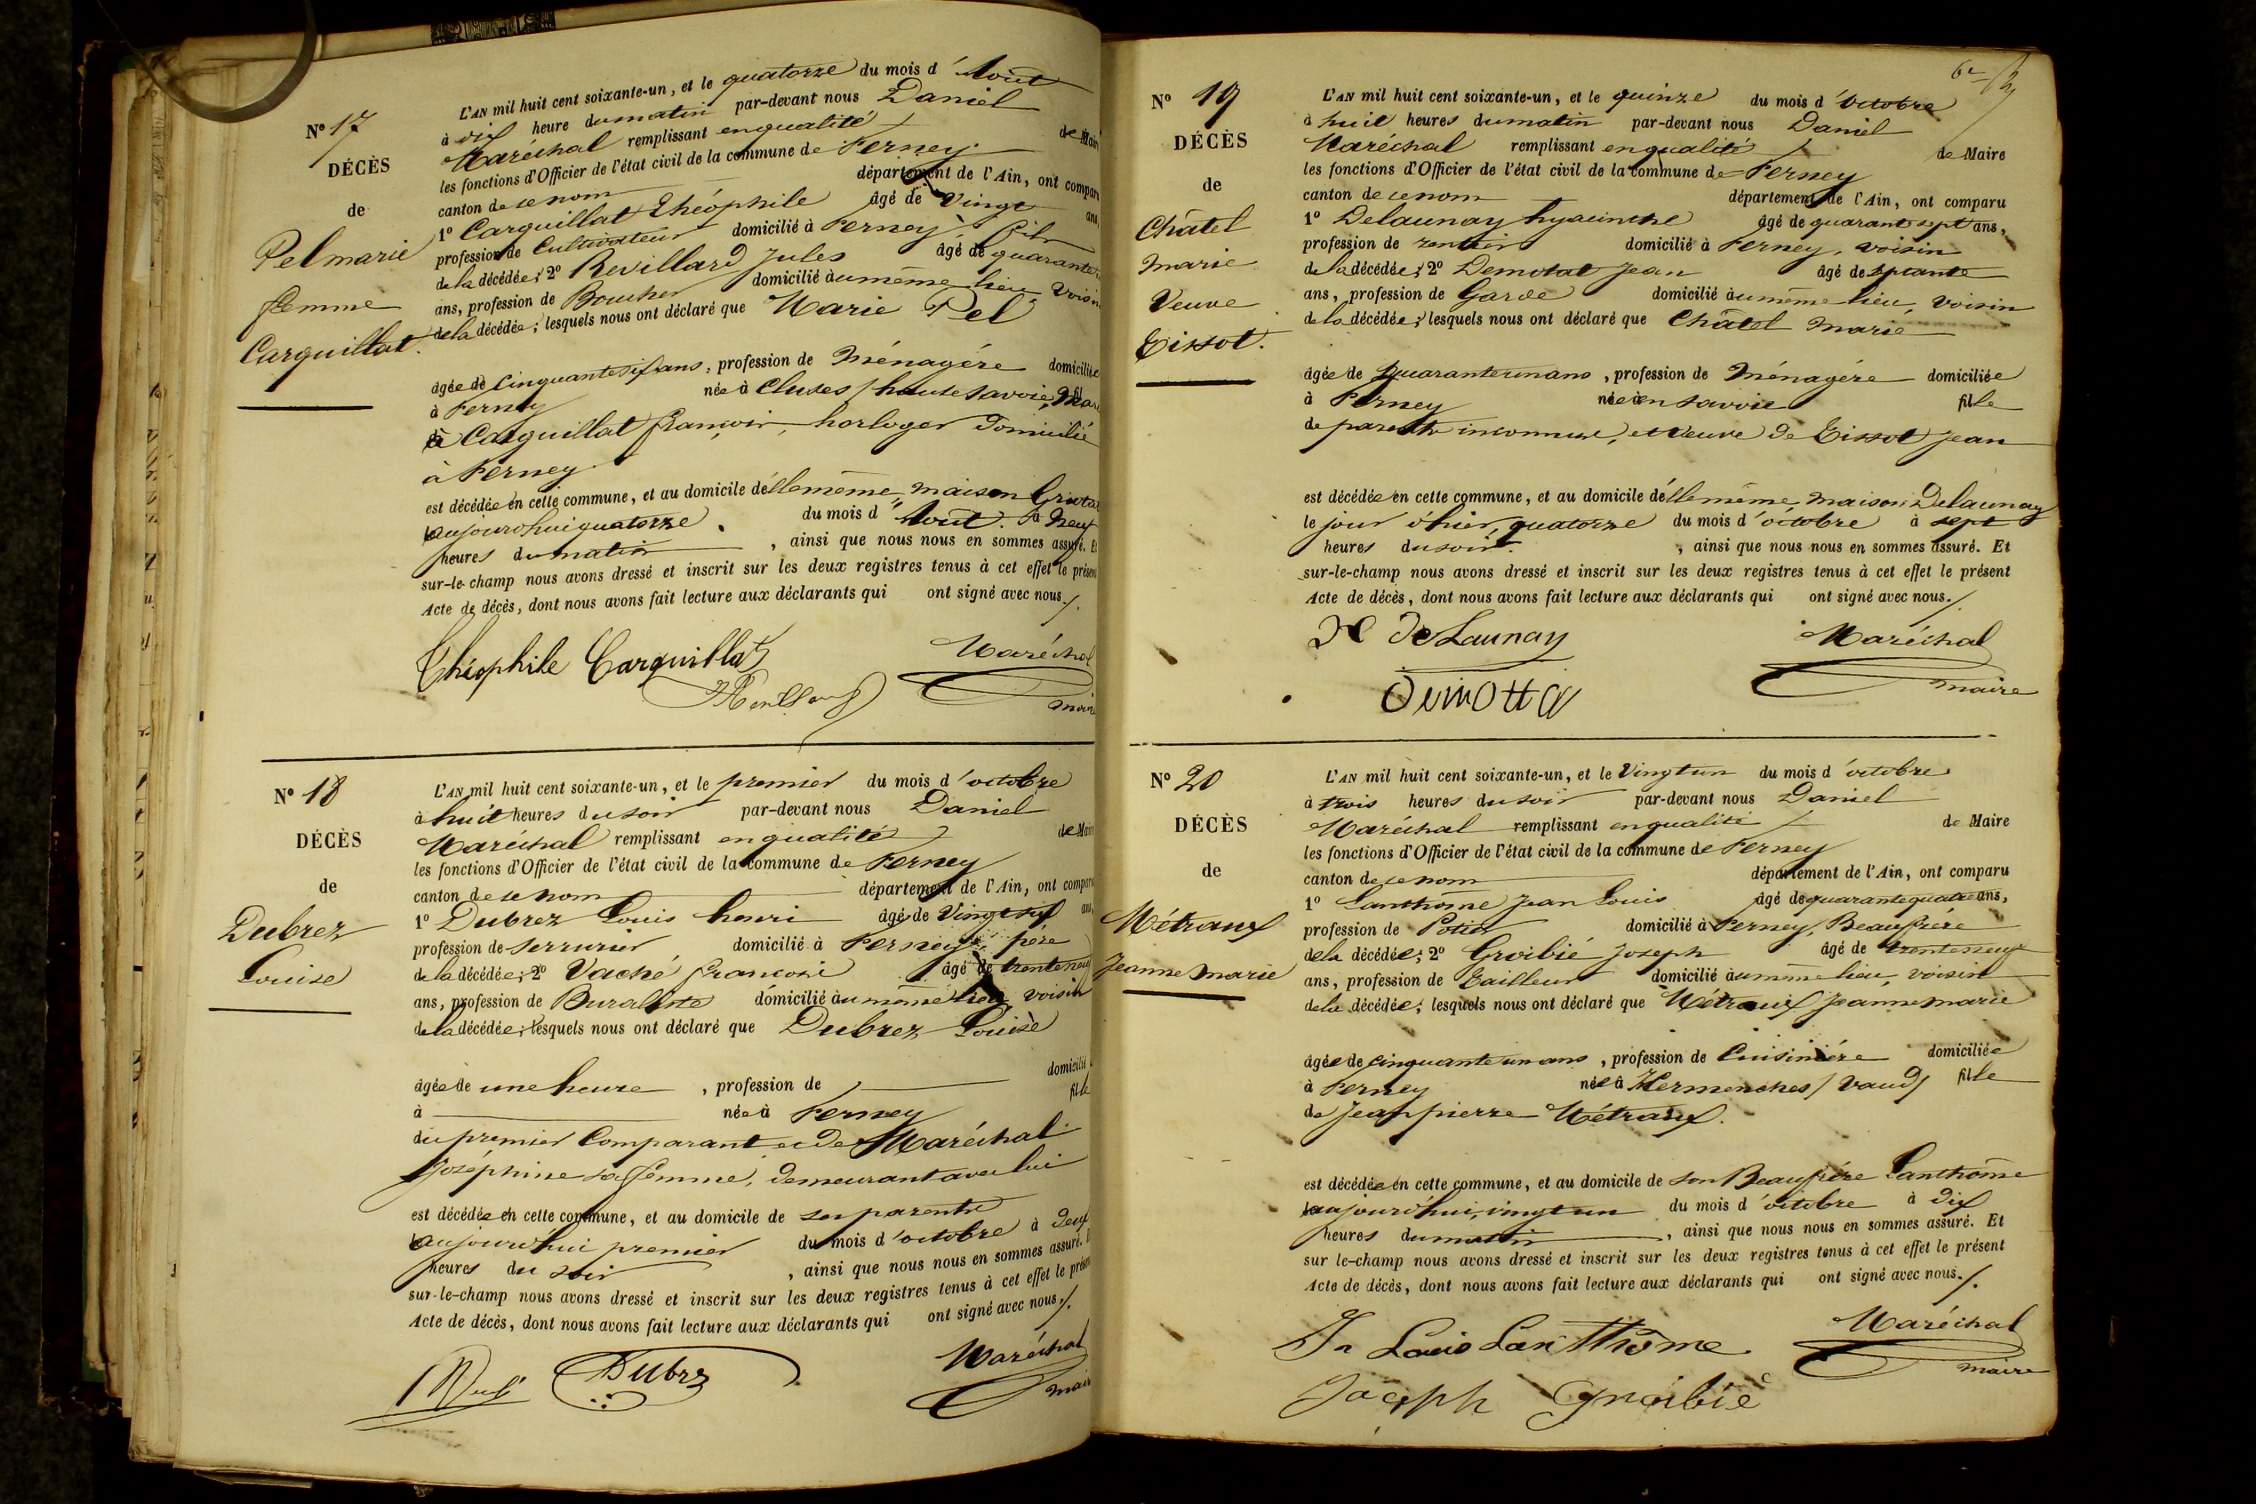 N° 17
DÉCÈS
de
Pel marie
femme
Carquillat.
L'AN mil huit cent soixante-un, et le quatorze du mois d'Août
à dix heure du matin par-devant nous Daniel
Maréchal remplissant en qualité de Maire
les fonctions d'Officier de l'état civil de la commune de Ferney
canton de ce nom département de l'Ain, ont comparu
1° Carquillat Théophile âgé de Vingt ans,
profession de Cultivateur domicilié à Ferney, fils
de la décédée; 2° Revillard Jules âgé de quarante
ans, profession de Boucher domicilié au même lieu, voisin
de la décédée; lesquels nous ont déclaré que Marie Pel
âgée de Cinquante six ans, profession de Ménagère domiciliée
à Ferney née à Cluses / haute Savoie,
à Carquillat françois, horloger domicilié
à Ferney.
est décédée en cette commune, et au domicile d'elle même, maison
aujourd'hui quatorze du mois d'Août à Neuf
heures du matin, ainsi que nous nous en sommes assuré. Et
sur-le-champ nous avons dressé et inscrit sur les deux registres tenus à cet effet le présent
Acte de décès, dont nous avons fait lecture aux déclarants qui ont signé avec nous./.
Théophile Carquillat Maréchal
maire
N° 18
DÉCÈS
de
Dubrez
Louise
L'AN mil huit cent soixante-un, et le premier du mois d'octobre
à huit heures du soir par-devant nous Daniel
Maréchal remplissant en qualité de Maire
les fonctions d'Officier de l'état civil de la commune de Ferney
canton de ce nom département de l'Ain, ont comparu
1° Dubrez Louis henri âgé de Vingt six ans,
profession de Serrurier domicilié à Ferney, père
de la décédée; 2° Vaché françois âgé de trente neuf
ans, profession de Buraliste domicilié au même lieu, voisin
de la décédée; lesquels nous ont déclaré que Dubrez Louise
âgée de une heure, profession de domicilié
à née à Ferney fille
du premier Comparant et de Maréchal
Joséphine sa femme, demeurant avec lui
est décédée en cette commune, et au domicile de ses parents
aujourd'hui premier du mois d'octobre à deux
heures du soir, ainsi que nous nous en sommes assuré. Et
sur-le-champ nous avons dressé et inscrit sur les deux registres tenus à cet effet le présent
Acte de décès, dont nous avons fait lecture aux déclarants qui ont signé avec nous./.
Dubrz Maréchal
maire
N° 19
DÉCÈS
de
Châtel
marie
Veuve
Tissot.
L'AN mil huit cent soixante-un, et le quinze du mois d'octobre
à huit heures du matin par-devant nous Daniel
Maréchal remplissant en qualité de Maire
les fonctions d'Officier de l'état civil de la commune de Ferney
canton de ce nom département de l'Ain, ont comparu
1° Delaunay hyacinthe âgé de quarant sept ans,
profession de rentier domicilié à Ferney, voisin
de la décédée; 2° Demotat Jean âgé de septante
ans, profession de Garde domicilié au même lieu, voisin
de la décédée; lesquels nous ont déclaré que Châtel Marie
âgée de quarante un ans, profession de Ménagère domiciliée
à Ferney née en Savoie fille
de parents inconnus, et Veuve de Tissot Jean
est décédée en cette commune, et au domicile d'elle même, maison Delaunay
le jour d'hier, quatorze du mois d'octobre à sept
heures du soir, ainsi que nous nous en sommes assuré. Et
sur-le-champ nous avons dressé et inscrit sur les deux registres tenus à cet effet le présent
Acte de décès, dont nous avons fait lecture aux déclarants qui ont signé avec nous./.
H DeLaunay Maréchal
maire
N° 20
DÉCÈS
de
Métraux
Jeanne marie
L'AN mil huit cent soixante-un, et le Vingt un du mois d'octobre
à trois heures du soir par-devant nous Daniel
Maréchal remplissant en qualité de Maire
les fonctions d'Officier de l'état civil de la commune de Ferney
canton de ce nom département de l'Ain, ont comparu
1° Lanthôme Jean Louis âgé de quarante quatre ans,
profession de Potier domicilié à Ferney, Beaufrère
de la décédée; 2° Groibié Joseph âgé de trente neuf
ans, profession de Tailleur domicilié au même lieu, voisin
de la décédée; lesquels nous ont déclaré que Métraux Jeanne marie
âgée de Cinquante un ans, profession de Cuisinière domiciliée
à Ferney née à Hermenches / Vaud / fille
de Jean pierre Métraux.
est décédée en cette commune, et au domicile de son Beaufrère Lanthôme
aujourd'hui, vingt un du mois d'octobre à dix
heures du matin, ainsi que nous nous en sommes assuré. Et
sur le-champ nous avons dressé et inscrit sur les deux registres tenus à cet effet le présent
Acte de décès, dont nous avons fait lecture aux déclarants qui ont signé avec nous./.
Jn Louis Lanthôme Maréchal
maire
Joseph Groibié